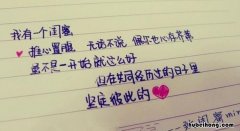 我有个闺蜜
推心置腹 无话不说 偶尔也心存芥蒂
虽不是一开始就这么好
但在共同经历过的日子里
坚定彼此的
min
zhubeihang.com